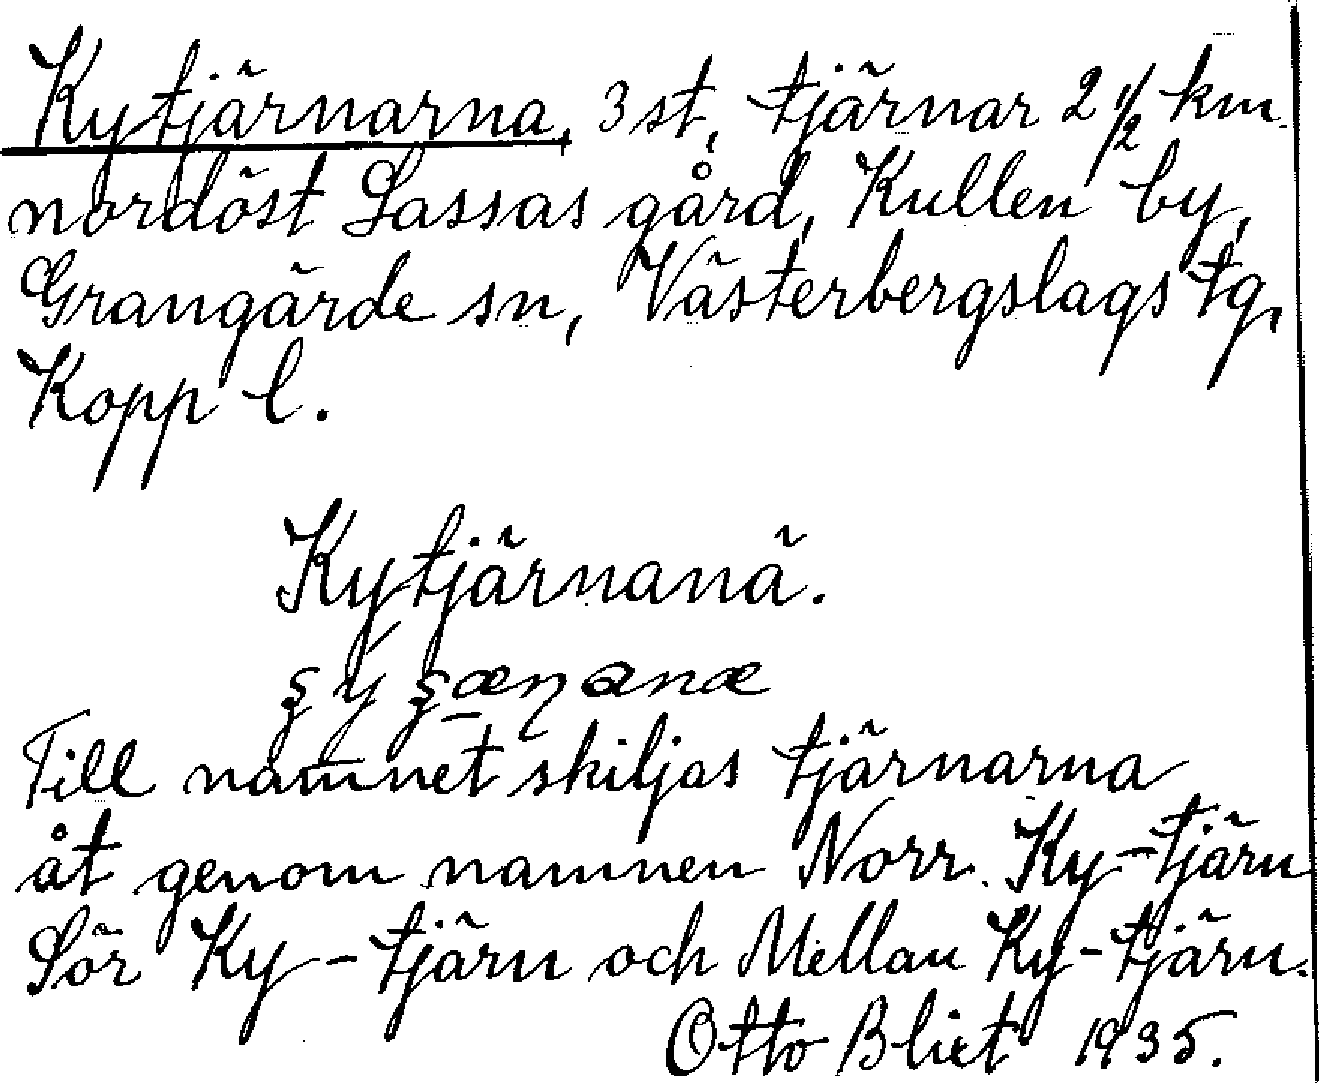 Kytjärnarna, 3 st, tjärnar 2 1/2 km
nordöst Lassas gård, Kullen by,
Grangärde sn, Västerbergslags tg,
Kopp l.
Kytjärnanä.
Till namnet skiljas tjärnarna
åt genom namnen Norr Ky-tjärn
Sör Ky-tjärn och Mellan Ky-tjärn.
Otto Blixt 1935.